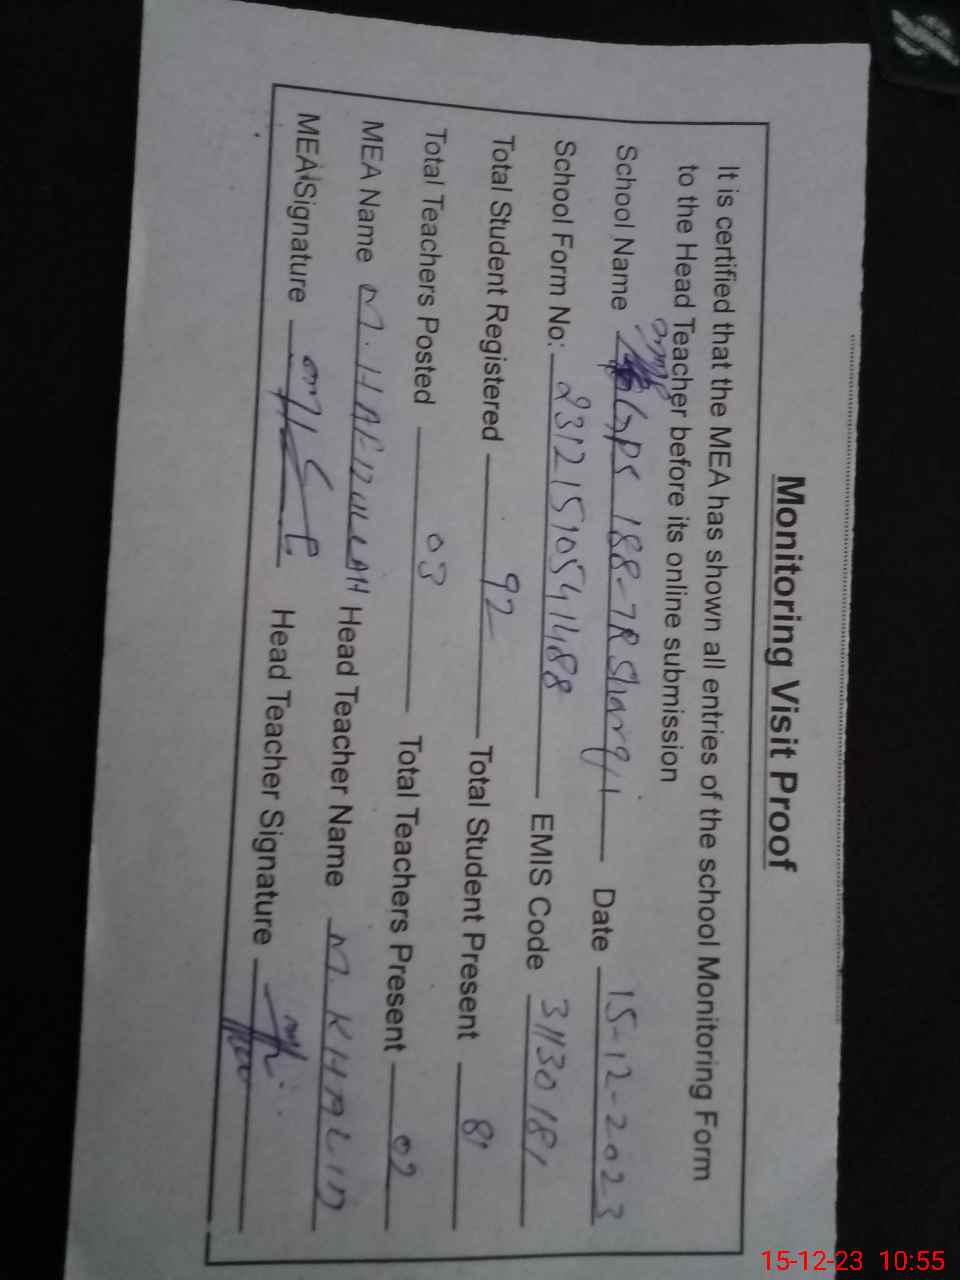 Monitoring Visit Proof
It is certified that the MEA has shown all entries of the school Monitoring Form
to the Head Teacher before its online submission
School Name GPS 188-7R Sharqi Date 15-12-2023
School Form No: 2312151054188 EMIS Code 31130181
Total Student Registered 92 Total Student Present 81
Total Teachers Posted 03 Total Teachers Present 02
MEA Name M. HAFIZULLAH Head Teacher Name M. KHALID
MEA Signature Head Teacher Signature
15-12-23 10:55